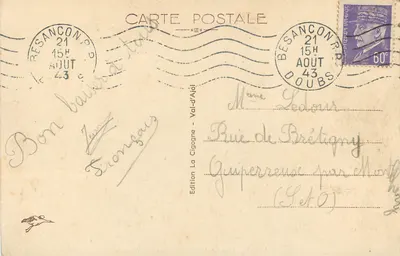 CARTE POSTALE
BESANÇON R.P.
21
15H
AOUT
43
BESANÇON R.P.
21
15H
AOUT
43
DOUBS
60c
Bon
Edition La Cigogne - Val-d'Ajol
Mme Ledour
Rue de Brétigny
Guiperreux par
(S et O)